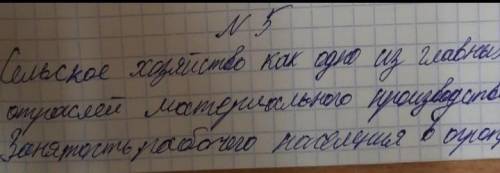 N 5
Сельское хозяйство как одно из главных
отраслей материального производства
Занятость рабочего населения в